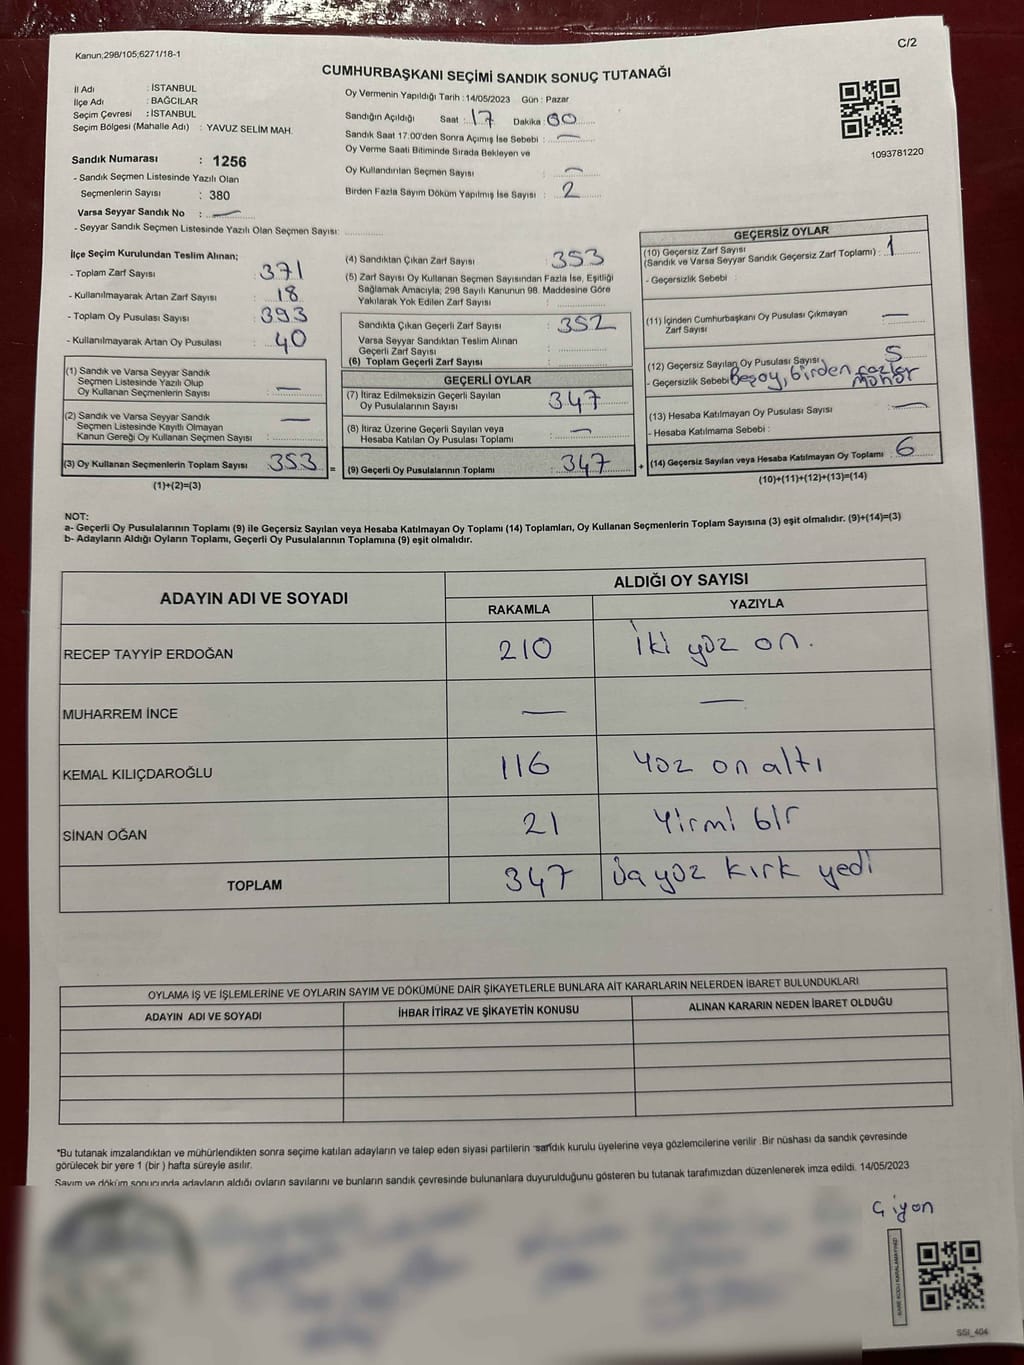 Kanun;298/105;6271/18-1
C/2
CUMHURBAŞKANI SEÇİMİ SANDIK SONUÇ TUTANAĞI
İl Adı : İSTANBUL
İlçe Adı : BAĞCILAR
Seçim Çevresi : İSTANBUL
Seçim Bölgesi (Mahalle Adı) : YAVUZ SELİM MAH.
Sandık Numarası : 1256
- Sandık Seçmen Listesinde Yazılı Olan
Seçmenlerin Sayısı : 380
Varsa Seyyar Sandık No : —
- Seyyar Sandık Seçmen Listesinde Yazılı Olan Seçmen Sayısı:
Oy Vermenin Yapıldığı Tarih : 14/05/2023 Gün : Pazar
Sandığın Açıldığı Saat : 17 Dakika : 00
Sandık Saat 17:00'den Sonra Açımış İse Sebebi : —
Oy Verme Saati Bitiminde Sırada Bekleyen ve
Oy Kullandırılan Seçmen Sayısı : —
Birden Fazla Sayım Döküm Yapılmış İse Sayısı : 2
1093781220
İlçe Seçim Kurulundan Teslim Alınan;
- Toplam Zarf Sayısı : 371
- Kullanılmayarak Artan Zarf Sayısı : 18
- Toplam Oy Pusulası Sayısı : 393
- Kullanılmayarak Artan Oy Pusulası : 40
(1) Sandık ve Varsa Seyyar Sandık
Seçmen Listesinde Yazılı Olup
Oy Kullanan Seçmenlerin Sayısı : —
(2) Sandık ve Varsa Seyyar Sandık
Seçmen Listesinde Kayıtlı Olmayan
Kanun Gereği Oy Kullanan Seçmen Sayısı : —
(3) Oy Kullanan Seçmenlerin Toplam Sayısı : 353 =
(1)+(2)=(3)
(4) Sandıktan Çıkan Zarf Sayısı : 353
(5) Zarf Sayısı Oy Kullanan Seçmen Sayısından Fazla İse, Eşitliği
Sağlamak Amacıyla; 298 Sayılı Kanunun 98. Maddesine Göre
Yakılarak Yok Edilen Zarf Sayısı :
Sandıkta Çıkan Geçerli Zarf Sayısı : 352
Varsa Seyyar Sandıktan Teslim Alınan
Geçerli Zarf Sayısı :
(6) Toplam Geçerli Zarf Sayısı :
GEÇERLİ OYLAR
(7) İtiraz Edilmeksizin Geçerli Sayılan
Oy Pusulalarının Sayısı : 347
(8) İtiraz Üzerine Geçerli Sayılan veya
Hesaba Katılan Oy Pusulası Toplamı : —
(9) Geçerli Oy Pusulalarının Toplamı : 347 +
GEÇERSİZ OYLAR
(10) Geçersiz Zarf Sayısı
(Sandık ve Varsa Seyyar Sandık Geçersiz Zarf Toplamı) : 1
- Geçersizlik Sebebi :
(11) İçinden Cumhurbaşkanı Oy Pusulası Çıkmayan
Zarf Sayısı : —
(12) Geçersiz Sayılan Oy Pusulası Sayısı : 5
- Geçersizlik Sebebi Boşoy, birden fazla
mühür
(13) Hesaba Katılmayan Oy Pusulası Sayısı : —
- Hesaba Katılmama Sebebi :
(14) Geçersiz Sayılan veya Hesaba Katılmayan Oy Toplamı : 6
(10)+(11)+(12)+(13)=(14)
NOT:
a- Geçerli Oy Pusulalarının Toplamı (9) ile Geçersiz Sayılan veya Hesaba Katılmayan Oy Toplamı (14) Toplamları, Oy Kullanan Seçmenlerin Toplam Sayısına (3) eşit olmalıdır. (9)+(14)=(3)
b- Adayların Aldığı Oyların Toplamı, Geçerli Oy Pusulalarının Toplamına (9) eşit olmalıdır.
ADAYIN ADI VE SOYADI ALDIĞI OY SAYISI
RAKAMLA YAZIYLA
RECEP TAYYİP ERDOĞAN 210 İki yüz on.
MUHARREM İNCE — —
KEMAL KILIÇDAROĞLU 116 Yüz on altı
SİNAN OĞAN 21 Yirmi bir
TOPLAM 347 Üçyüz kırk yedi
OYLAMA İŞ VE İŞLEMLERİNE VE OYLARIN SAYIM VE DÖKÜMÜNE DAİR ŞİKAYETLERLE BUNLARA AİT KARARLARIN NELERDEN İBARET BULUNDUKLARI
ADAYIN ADI VE SOYADI İHBAR İTİRAZ VE ŞİKAYETİN KONUSU ALINAN KARARIN NEDEN İBARET OLDUĞU
*Bu tutanak imzalandıktan ve mühürlendikten sonra seçime katılan adayların ve talep eden siyasi partilerin sandık kurulu üyelerine veya gözlemcilerine verilir .Bir nüshası da sandık çevresinde
görülecek bir yere 1 (bir ) hafta süreyle asılır.
Sayım ve döküm sonucunda adayların aldığı oyların sayılarını ve bunların sandık çevresinde bulunanlara duyurulduğunu gösteren bu tutanak tarafımızdan düzenlenerek imza edildi. 14/05/2023
SSI_404